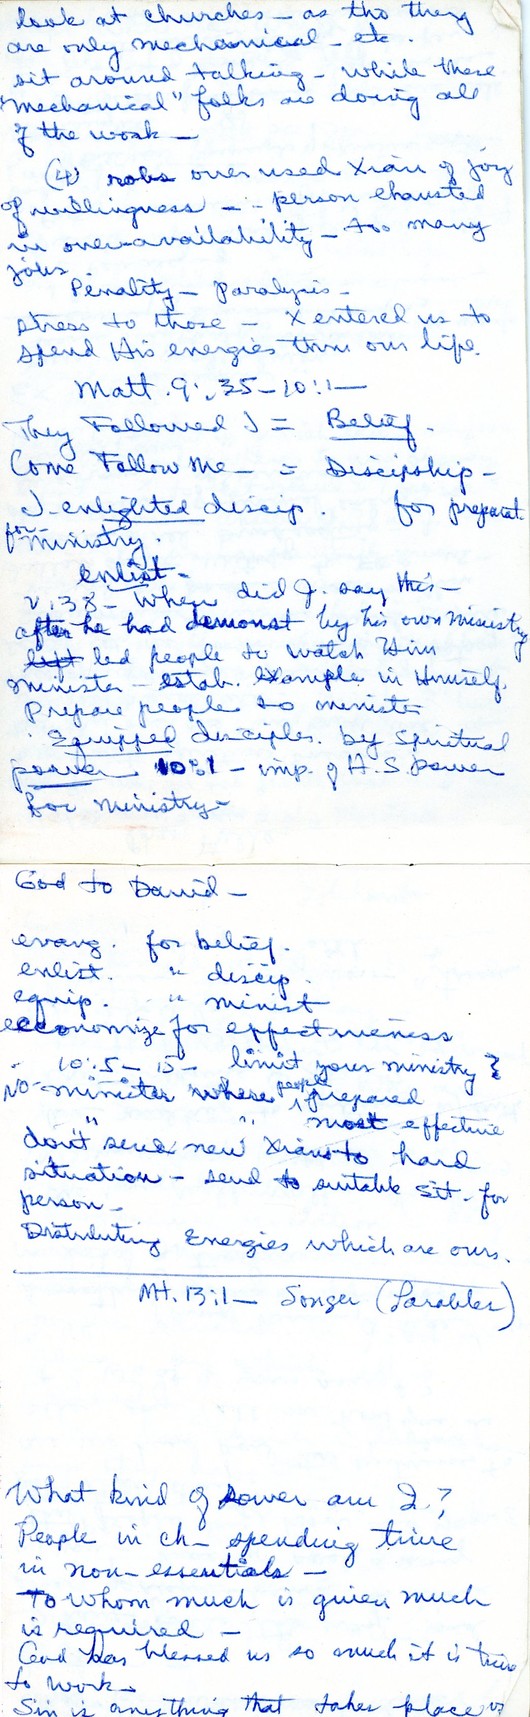 look at churches – as tho they
are only mechanical – etc.
sit around talking – while these
"mechanical" folks are doing all
of the work –
(4) robs over used Xian of joy
of willingness – – person exhausted
in over-availability – too many
jobs.
Penality – paralysis –
stress to those – X entered us to
spend His energies thru our life.
Matt. 9:35–10:1 –
They Followed J = Belief.
Come Follow Me – = Discipship –
J. enlighted discip. for preparat
for ministry.
enlist –
v. 38 – When did J. say this –
after he had demonst by his own ministry
left led people to watch Him
minister – estab. example in Himself.
Prepare people to minister
Equipped disciples. by Spiritual
power 10:1 – imp. of H.S. power
for ministry –
God to David –
evang. for belief.
enlist. " discip.
equip. " minist
economize for effectiveness
10:5–15 – limit your ministry
NO – minister where people prepared
" " most effective
don't send new Xians to hard
situation – send to suitable sit. for
person –
Distributing Energies which are ours.
Mt. 13:1 – Songer (Parables)
What kind of sower am I?
People in ch – spending time
in non-essentials –
To Whom much is given much
is required –
God has blessed us so much it is time
to work –
Sin is anything that takes place of